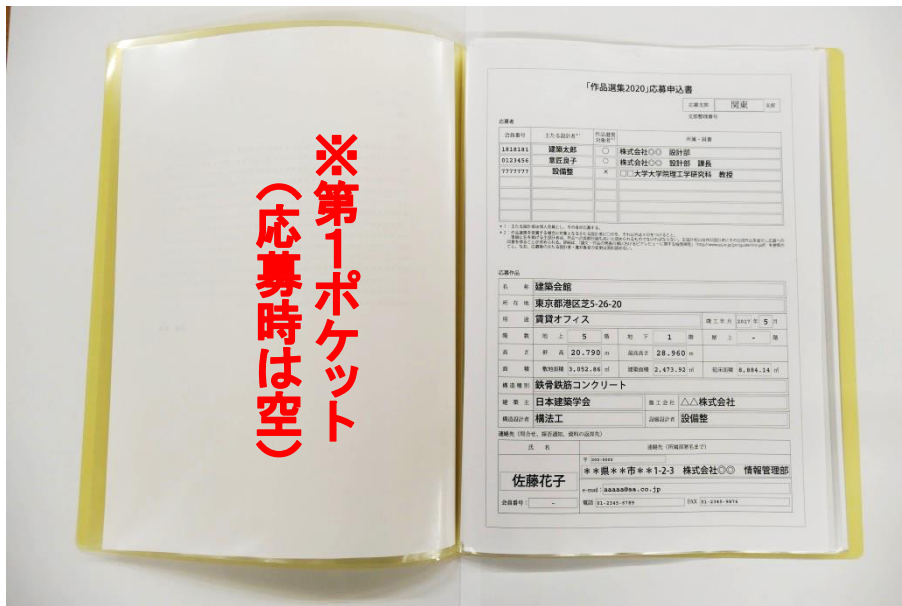 ※第1ポケット
（応募時は空）
「作品選集2020」応募申込書
応募支部 関東 支部
支部整理番号
応募者
会員番号 主たる設計者*¹ 作品選奨対象者*² 所属・肩書
1818181 建築太郎 ○ 株式会社○○ 設計部
0123456 意匠良子 ○ 株式会社○○ 設計部 課長
7777777 設備整 × □□大学大学院理工学研究科 教授
応募作品
名称 建築会館
所在地 東京都港区芝5-26-20
用途 賃貸オフィス 竣工年月 2017 年 5 月
階数 地上 5 階 地下 1 階 塔上 - 階
高さ 軒高 20.790 m 最高高さ 28.960 m
面積 敷地面積 3,052.86 ㎡ 建築面積 2,473.92 ㎡ 延床面積 8,884.14 ㎡
構造種別 鉄骨鉄筋コンクリート
建築主 日本建築学会 施工会社 △△株式会社
構造設計者 構法工 設備設計者 設備整
連絡先（問合せ、採否通知、資料の返却先）
氏名 連絡先（所属部署名まで）
〒
＊＊県＊＊市＊＊1-2-3 株式会社○○ 情報管理部
佐藤花子
e-mail： aaaaa@aa.co.jp
会員番号： - 電話 01-2345-6789 FAX 01-2345-9876